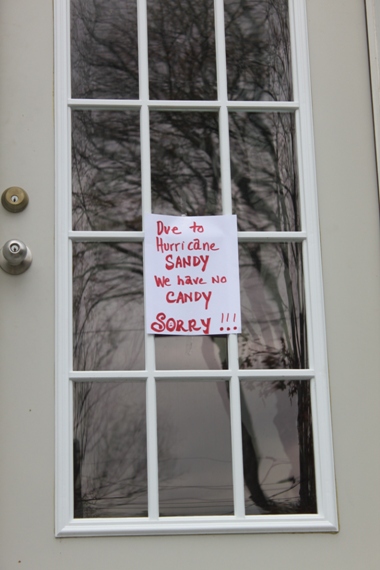 Due to
Hurricane
SANDY
We have No
CANDY
SORRY !!!